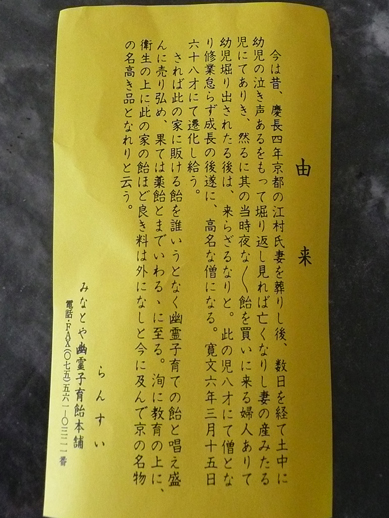 由来
今は昔、慶長四年京都の江村氏妻を葬りし後、数日を経て土中に
幼児の泣き声あるをもって掘り返し見れば亡くなりし妻の産みたる
児にてありき、然るに其の当時夜な〱飴を買いに来る婦人ありて
幼児掘り出されたる後は、来らざるなりと。此の児八才にて僧とな
り修業怠らず成長の後遂に、高名な僧になる。寛文六年三月十五日
六十八才にて遷化し給う。
されば此の家に販ける飴を誰いうとなく幽霊子育ての飴と唱え盛
んに売り弘め、果ては薬飴とまでいわるゝに至る。洵に教育の上に、
衛生の上に此の家の飴ほど良き料は外になしと今に及んで京の名物
の名高き品となれりと云う。
らんすい
みなとや幽霊子育飴本舗
電話・FAX(〇七五)五六一‐〇三二一番